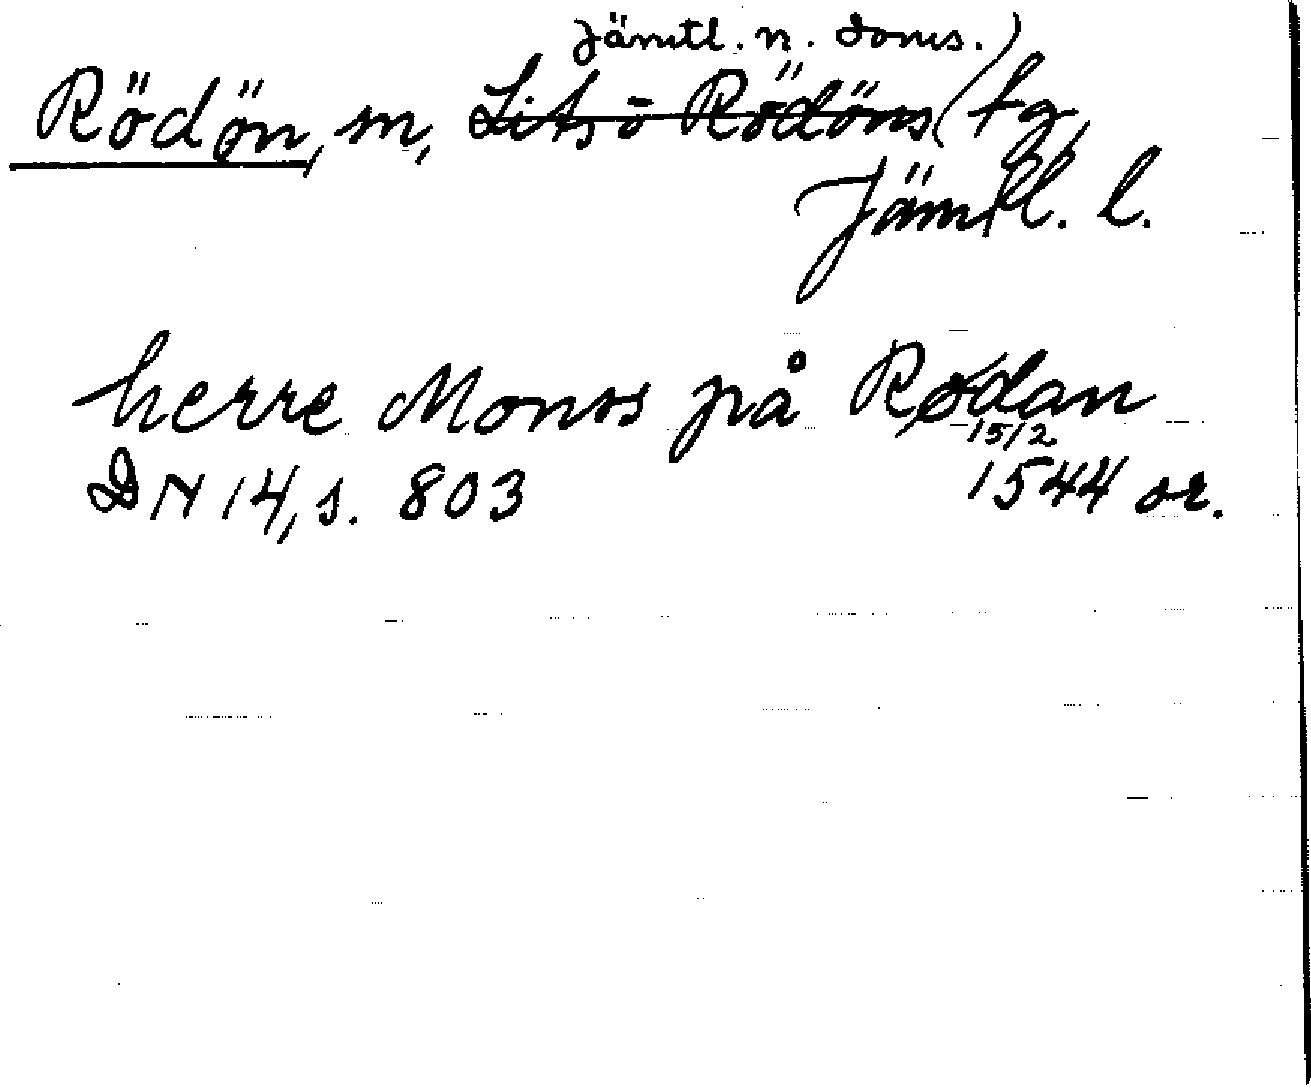 Jämtl. n. doms.)
Rödön, sn, Lits ō Rödöns (tg,
Jämtl. l.
herre Monss på Rødan
15/2
DN 14, s. 803 1544 or.